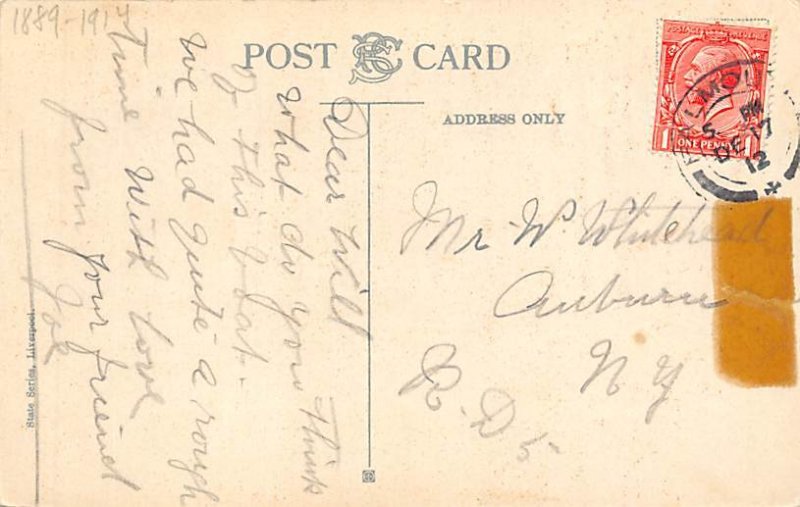 1889-1914
POST CARD
ADDRESS ONLY
POSTAGE REVENUE
1 ONE PENNY 1
5 PM
DE 17
12
Dear Will
what do you think
of this boat.
We had quite a rough
time With love
from your friend
Joe
Mr W Whitehead
Auburn
N Y
R. D. 5
State Series, Liverpool.